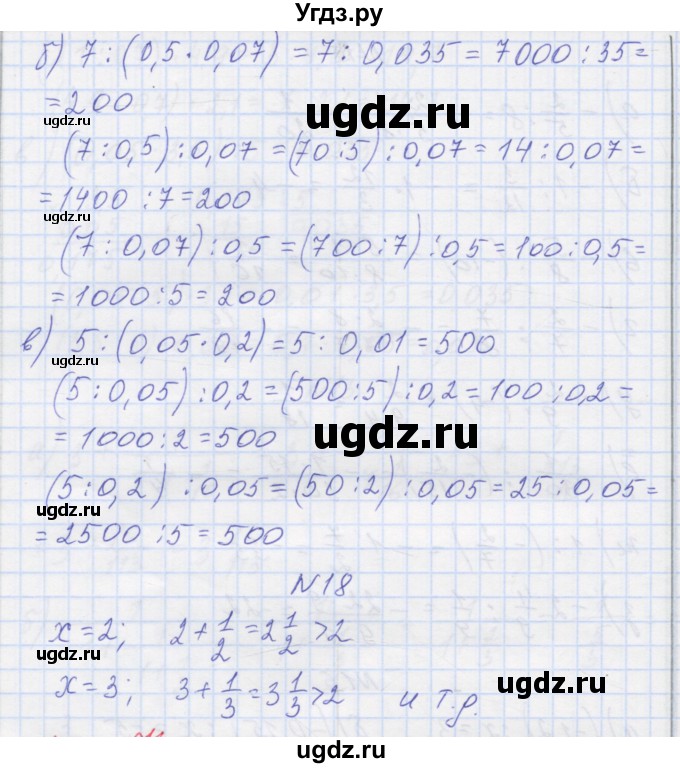 Угдз.ру
б) 7 : (0,5 · 0,07) = 7 : 0,035 = 7000 : 35 =
= 200
ugdz.ru
ugdz.ru
(7 : 0,5) : 0,07 = (70 : 5) : 0,07 = 14 : 0,07 =
= 1400 : 7 = 200
ugdz.ru
(7 : 0,07) : 0,5 = (700 : 7) : 0,5 = 100 : 0,5 =
= 1000 : 5 = 200
в) 5 : (0,05 · 0,2) = 5 : 0,01 = 500
ugdz.ru
(5 : 0,05) : 0,2 = (500 : 5) : 0,2 = 100 : 0,2 =
= 1000 : 2 = 500
ugdz.ru
(5 : 0,2) : 0,05 = (50 : 2) : 0,05 = 25 : 0,05 =
ugdz.ru
= 2500 : 5 = 500
N18
x = 2; 2 + 1/2 = 2 1/2 > 2
ugdz.ru
x = 3; 3 + 1/3 = 3 1/3 > 2 и т.д.
ugdz.ru